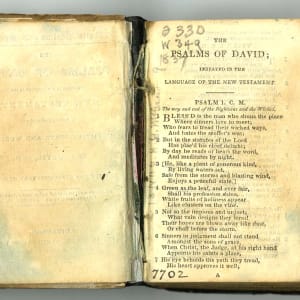 Ə 330
W 349
1837
THE
PSALMS OF DAVID;
IMITATED IN THE
LANGUAGE OF THE NEW TESTAMENT.
PSALM 1. C. M.
The way and end of the Righteous and the Wicked.
BLESSED is the man who shuns the place
Where sinners love to meet,
Who fears to tread their wicked ways,
And hates the scoffer's seat:
2 But in the statutes of the Lord
Has plac'd his chief delight;
By day he reads or hears the word,
And meditates by night.
3 [He, like a plant of generous kind,
By living waters set,
Safe from the storms and blasting wind,
Enjoys a peaceful state.]
4 Green as the leaf, and ever fair,
Shall his profession shine,
While fruits of holiness appear
Like clusters on the vine.
5 Not so the impious and unjust,
What vain designs they form!
Their hopes are blown away like dust,
Or chaff before the storm.
6 Sinners in judgment shall not stand
Amongst the sons of grace,
When Christ, the Judge, at his right hand
Appoints his saints a place,
7 His eye beholds the path they tread,
His heart approves it well;
A
7702